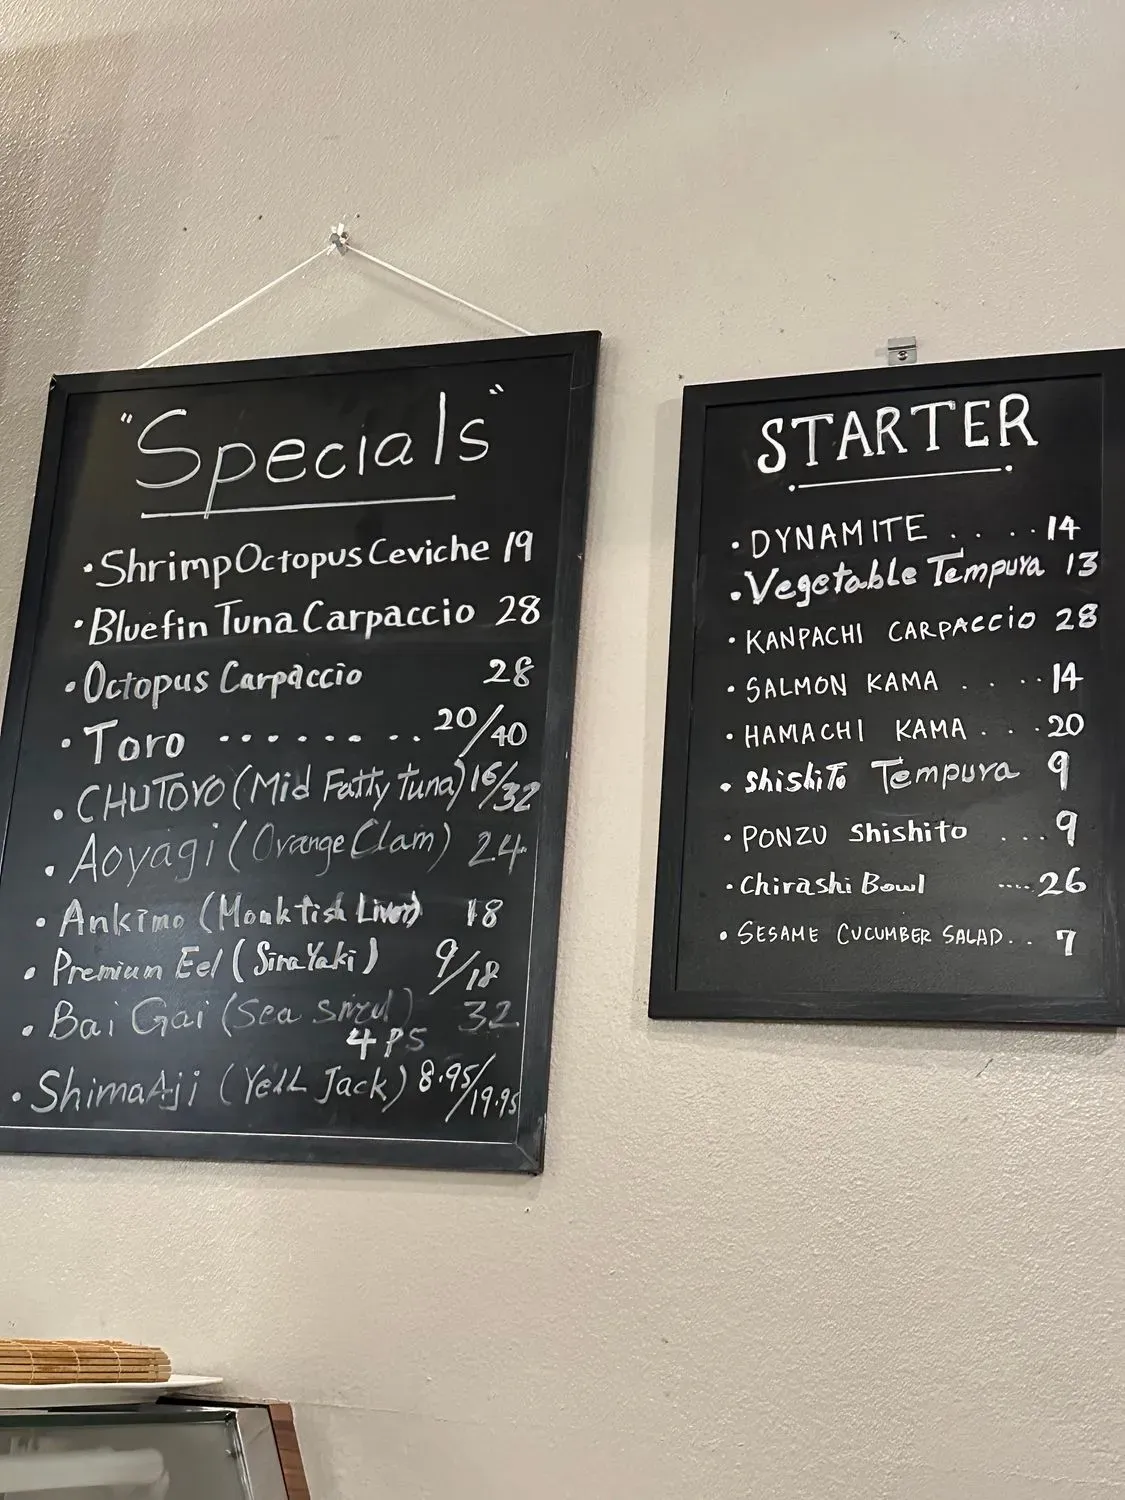 "Specials"
• Shrimp Octopus Ceviche 19
• Bluefin Tuna Carpaccio 28
• Octopus Carpaccio 28
• Toro . . . . . . . . 20/40
• CHUTORO (Mid Fatty Tuna) 16/32
• Aoyagi (Orange Clam) 24
• Ankimo (Monkfish Liver) 18
• Premium Eel (SiraYaki) 9/18
• Bai Gai (Sea snail) 32
4 PS
• ShimaAji (Yell Jack) 8.95/19.95
STARTER
• DYNAMITE . . . . . 14
• Vegetable Tempura 13
• KANPACHI CARPACCIO 28
• SALMON KAMA . . . . 14
• HAMACHI KAMA . . . 20
• Shishito Tempura 9
• PONZU Shishito . . . 9
• Chirashi Bowl .... 26
• SESAME CUCUMBER SALAD . . 7